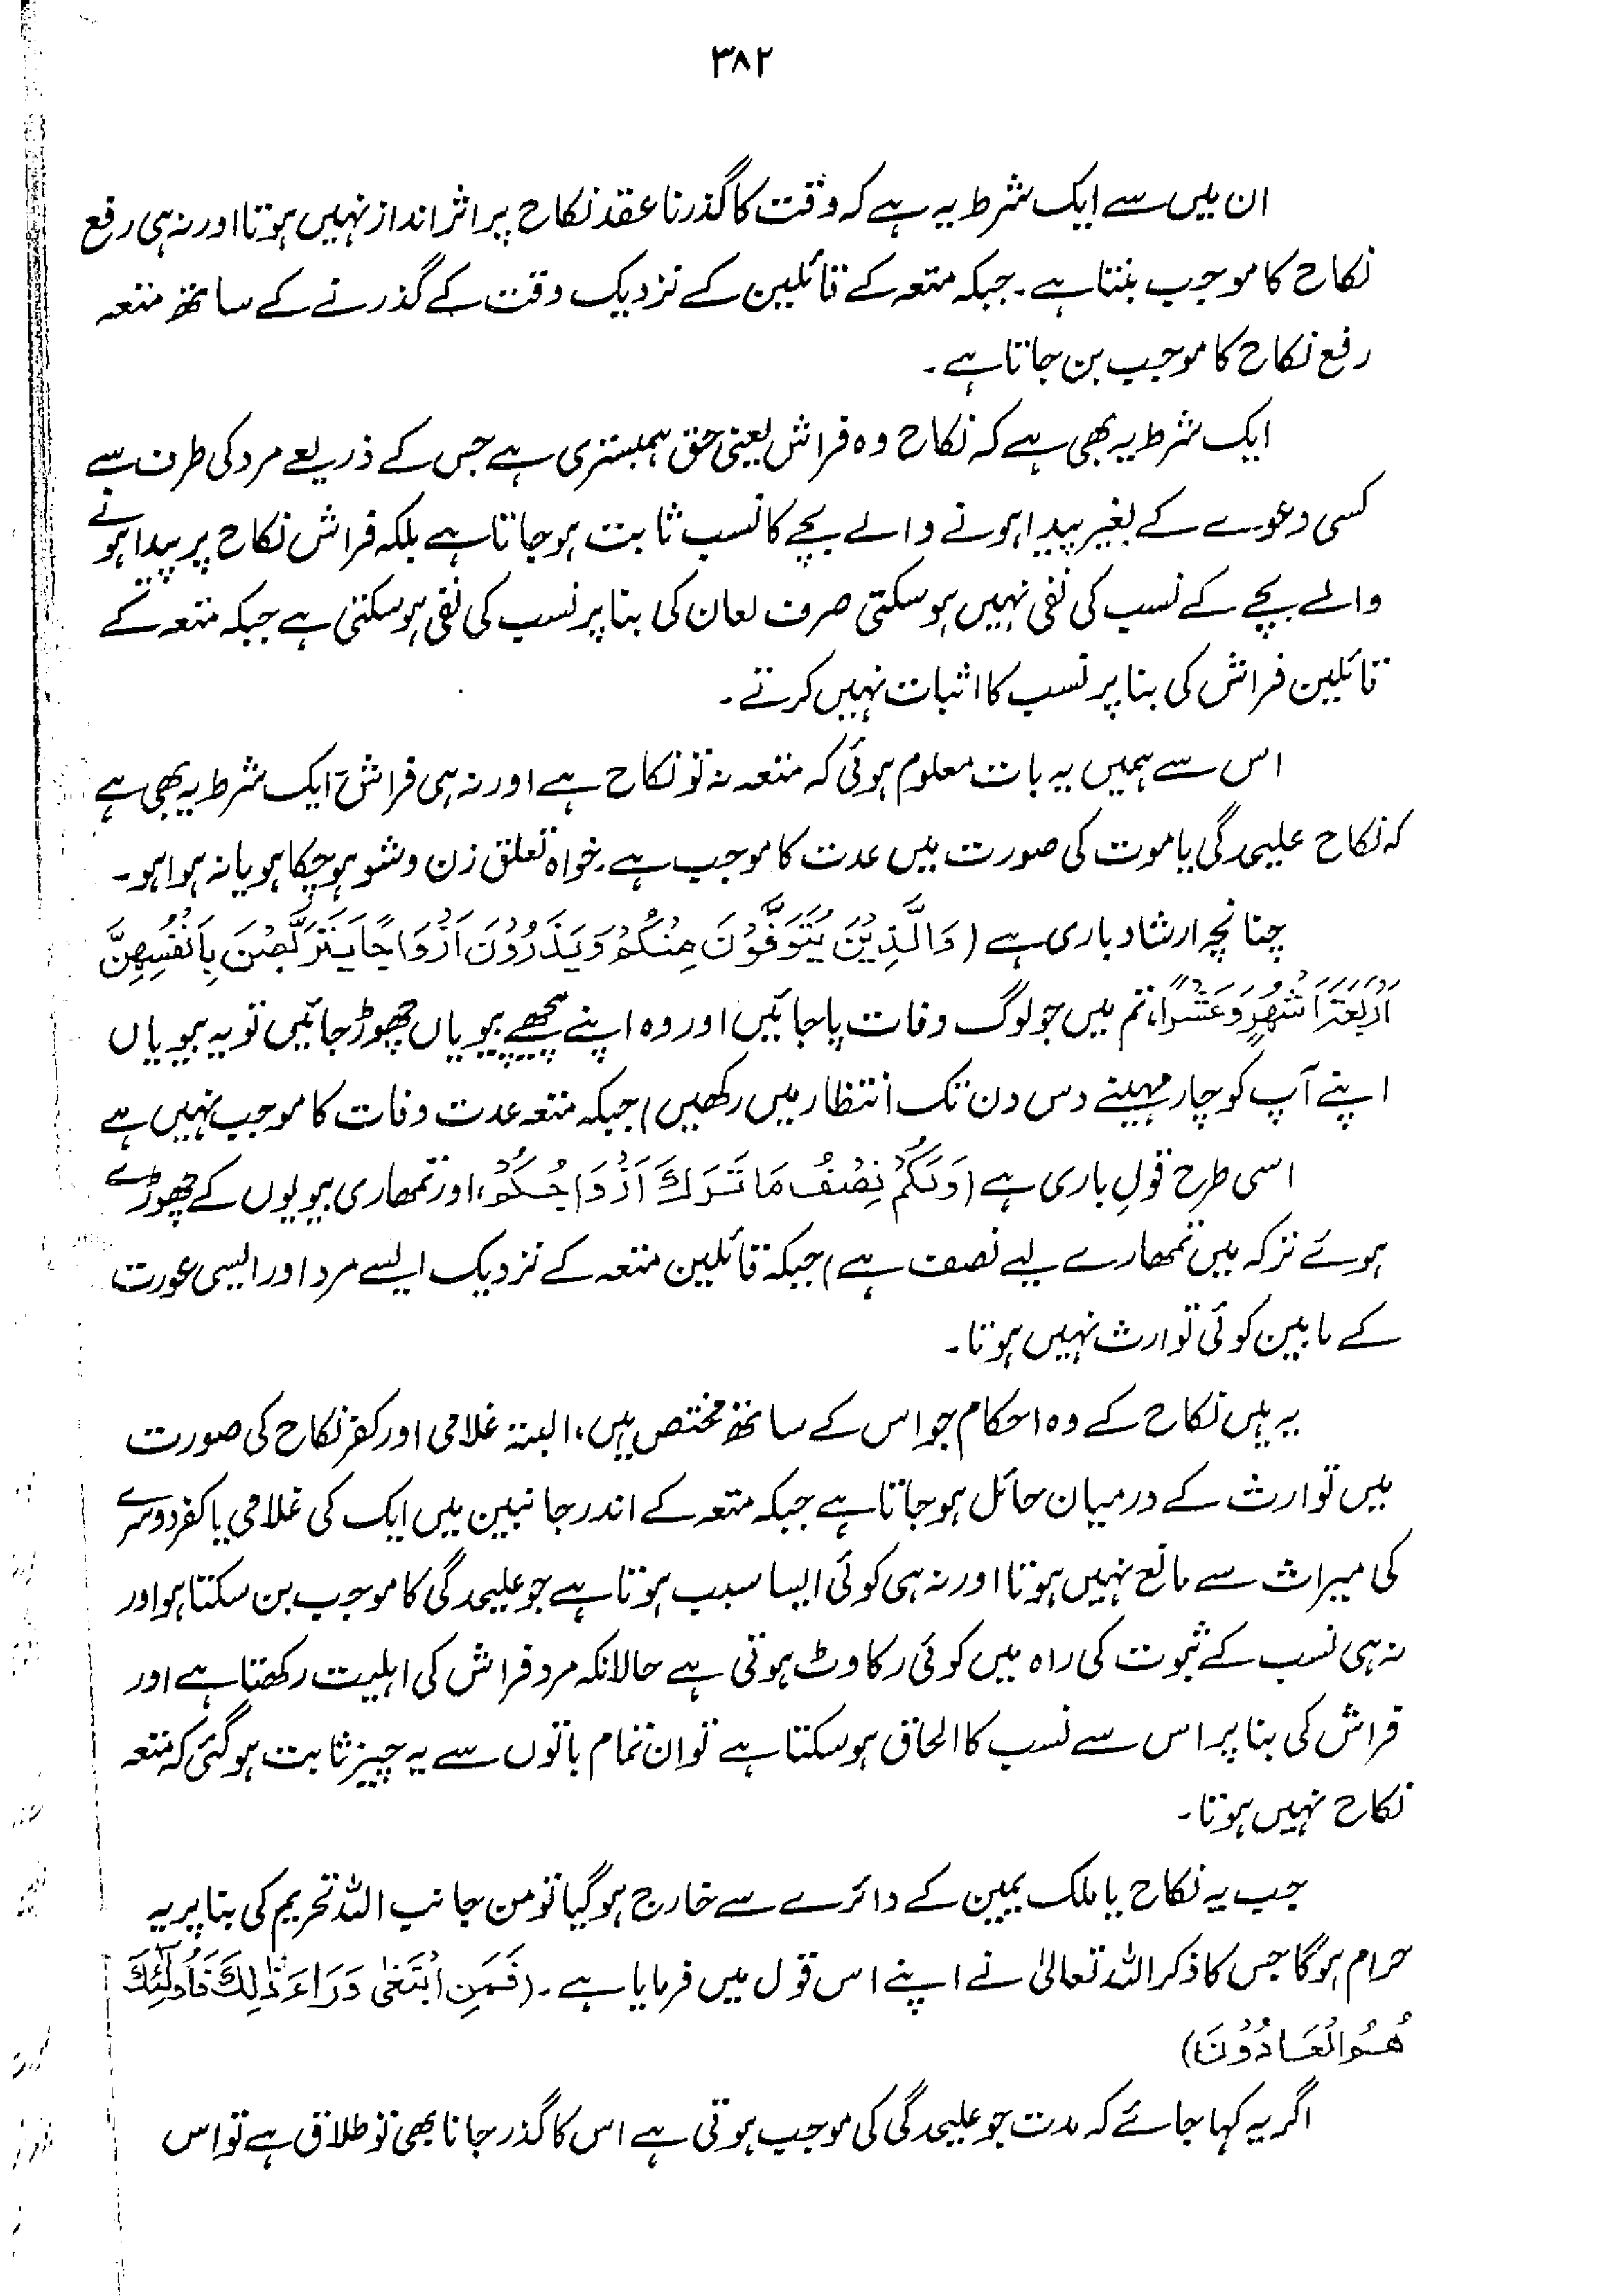 ۳۸۲
ان میں سے ایک شرط یہ ہے کہ وقت کا گذرنا عقد نکاح پر اثر انداز نہیں ہوتا اور نہ ہی رفع
نکاح کا موجب بنتا ہے۔ جبکہ متعہ کے قائلین کے نزدیک وقت کے گذرنے کے ساتھ متعہ
رفع نکاح کا موجب بن جاتا ہے۔
ایک شرط یہ بھی ہے کہ نکاح وہ فراش یعنی حق ہمبستری ہے جس کے ذریعے مرد کی طرف سے
کسی دعوے کے بغیر پیدا ہونے والے بچے کا نسب ثابت ہو جاتا ہے بلکہ فراش نکاح پر پیدا ہونے
والے بچے کے نسب کی نفی نہیں ہو سکتی صرف لعان کی بنا پر نسب کی نفی ہو سکتی ہے جبکہ متعہ کے
قائلین فراش کی بنا پر نسب کا اثبات نہیں کرتے۔
اس سے ہمیں یہ بات معلوم ہوئی کہ متعہ نہ تو نکاح ہے اور نہ ہی فراش۔ ایک شرط یہ بھی ہے
کہ نکاح علیحدگی یا موت کی صورت میں عدت کا موجب ہے۔ خواہ تعلق زن و شو ہو چکا ہو یا نہ ہوا ہو۔
چنانچہ ارشاد باری ہے (وَالَّذِیْنَ یُتَوَفَّوْنَ مِنْکُمْ وَیَذَرُوْنَ اَزْوَاجًا یَتَرَبَّصْنَ بِاَنْفُسِهِنَّ
اَرْبَعَةَ اَشْهُرٍ وَّعَشْرًا، تم میں جو لوگ وفات پا جائیں اور وہ اپنے پیچھے بیویاں چھوڑ جائیں تو یہ بیویاں
اپنے آپ کو چار مہینے دس دن تک انتظار میں رکھیں) جبکہ متعہ عدت وفات کا موجب نہیں ہے
اسی طرح قولِ باری ہے (وَلَکُمْ نِصْفُ مَا تَرَكَ اَزْوَاجُکُمْ، اور تمھاری بیویوں کے چھوڑے
ہوئے ترکہ میں تمھارے لیے نصف ہے) جبکہ قائلین متعہ کے نزدیک ایسے مرد اور ایسی عورت
کے مابین کوئی توارث نہیں ہوتا۔
یہ ہیں نکاح کے وہ احکام جو اس کے ساتھ مختص ہیں، البتہ غلامی اور کفر نکاح کی صورت
میں توارث کے درمیان حائل ہو جاتا ہے جبکہ متعہ کے اندر جانبین میں ایک کی غلامی یا کفر دوسرے
کی میراث سے مانع نہیں ہوتا اور نہ ہی کوئی ایسا سبب ہوتا ہے جو علیحدگی کا موجب بن سکتا ہو اور
نہ ہی نسب کے ثبوت کی راہ میں کوئی رکاوٹ ہوتی ہے حالانکہ مرد فراش کی اہلیت رکھتا ہے اور
فراش کی بنا پر اس سے نسب کا الحاق ہو سکتا ہے تو ان تمام باتوں سے یہ چیز ثابت ہو گئی کہ متعہ
نکاح نہیں ہوتا۔
جب یہ نکاح یا ملک یمین کے دائرے سے خارج ہو گیا تو من جانب اللہ تحریم کی بنا پر یہ
حرام ہوگا جس کا ذکر اللہ تعالیٰ نے اپنے اس قول میں فرمایا ہے۔ (فَمَنِ ابْتَغٰی وَرَاءَ ذٰلِكَ فَاُولٰٓئِكَ
هُمُ الْعَادُوْنَ)
اگر یہ کہا جائے کہ مدت جو علیحدگی کی موجب ہوتی ہے اس کا گذر جانا بھی تو طلاق ہے تو اس